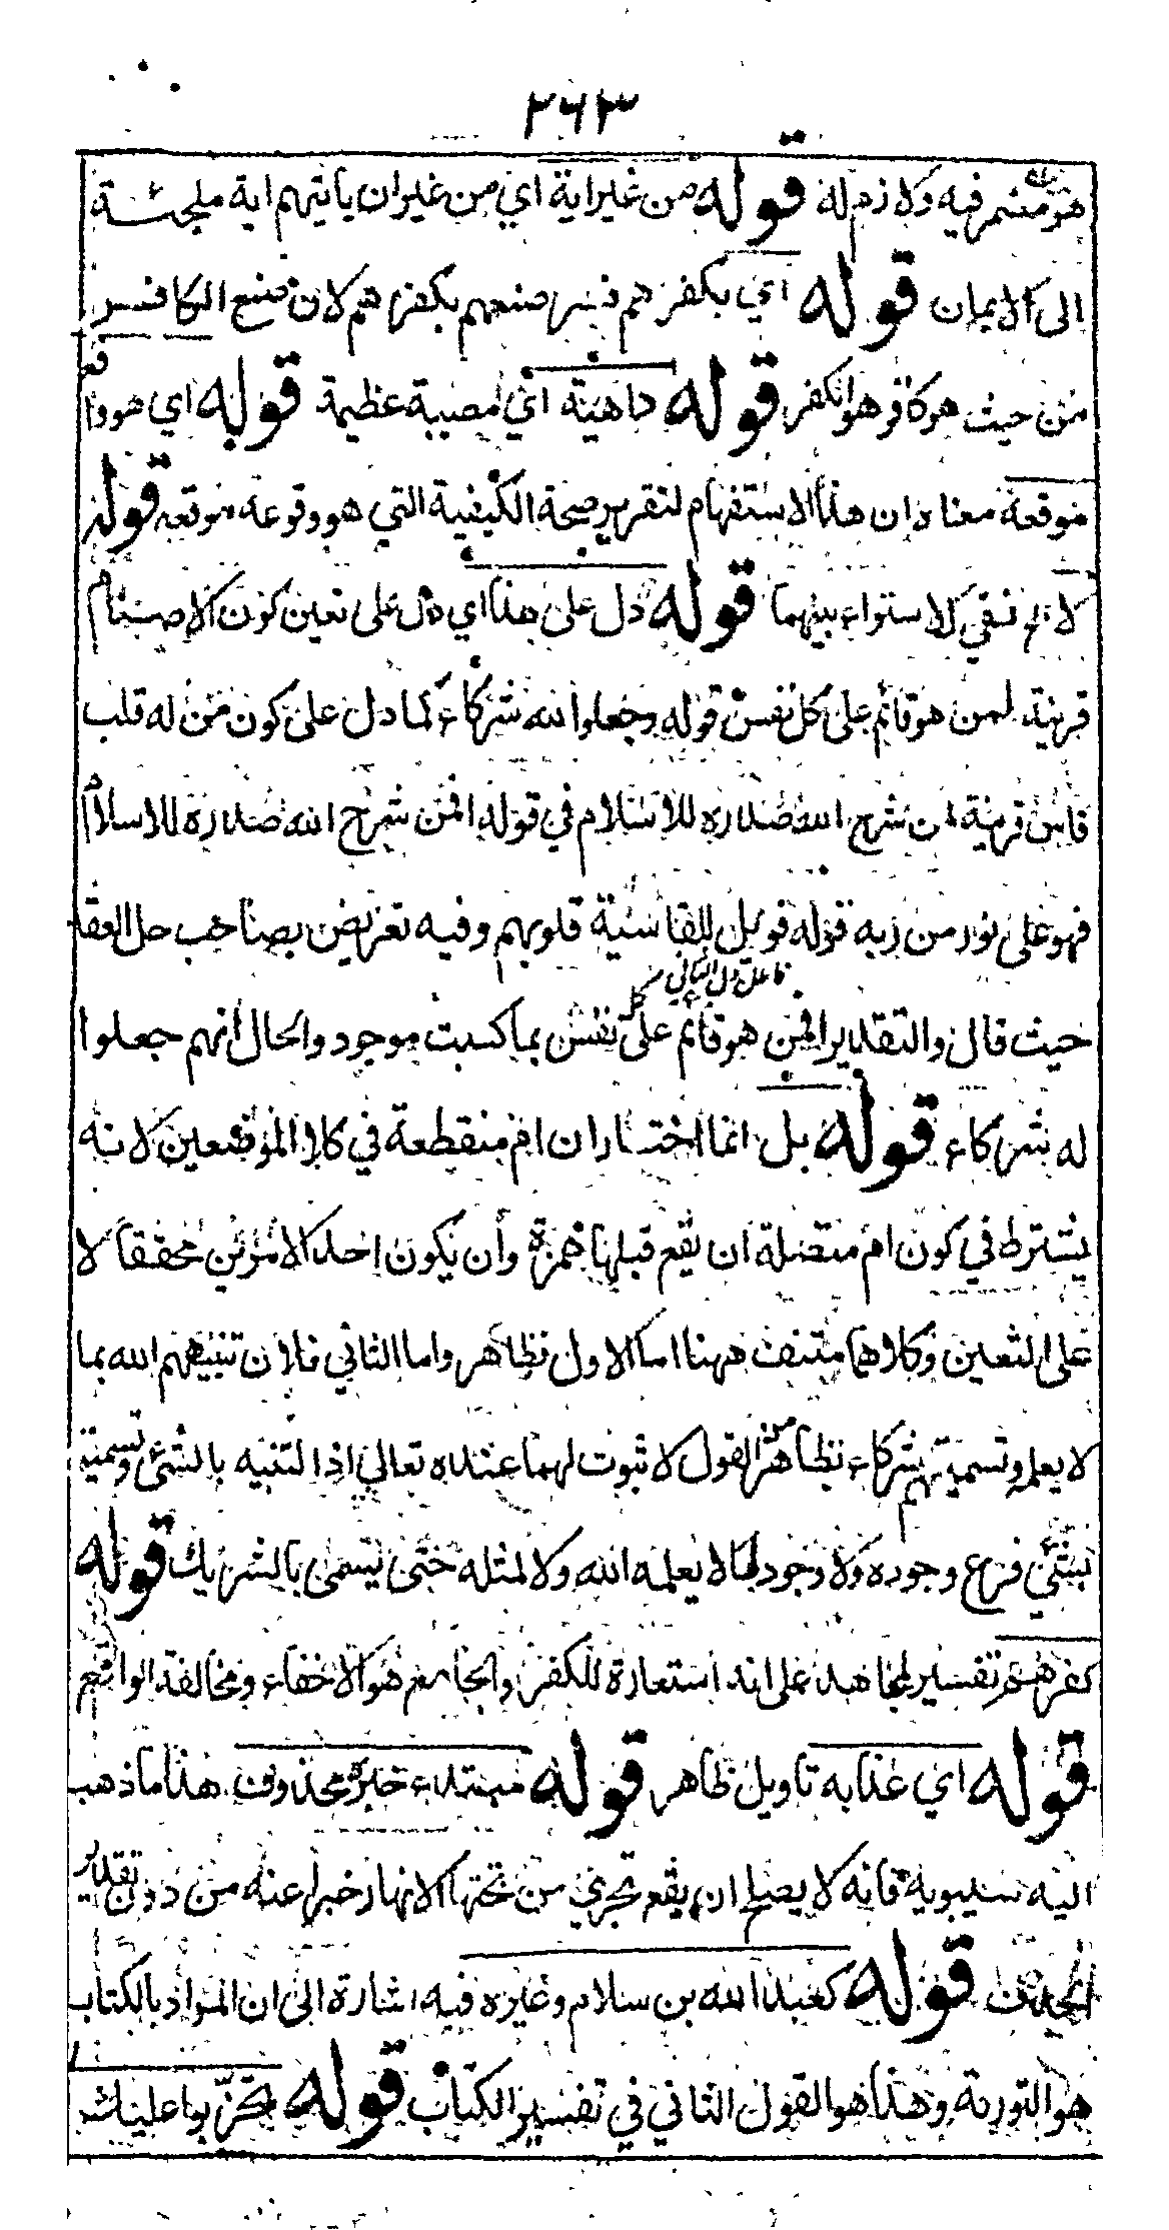 ٢٦٣
هو مضمر فيه ولازم له قوله من غير اية اي من غير ان ياتيهم اية ملجئة
الى الايمان قوله اي بكفرهم فسر صنعهم بكفرهم لان صنع الكافر
من حيث هو كافر هو الكفر قوله داهية اي مصيبة عظيمة قوله اي هو واقع
موقعه معناه ان هذا الاستفهام لتقرير صحة الكيفية التي هو وقوعه موقعه قوله
لا لم نفي الاستواء بينهما قوله دل على هذا اي دل على تعين كون الاصنام
قرينة لمن هو قائم على كل نفس قوله وجعلوا لله شركاء كما دل على كون من له قلب
قاس قرينة لمن شرح الله صدره للاسلام في قوله افمن شرح الله صدره للاسلام
فهو على نور من ربه قوله فويل للقاسية قلوبهم وفيه تعريض بصاحب حل العقد
فاعل دل الثاني
حيث قال والتقدير افمن هو قائم على كل نفس بما كسبت موجود والحال انهم جعلوا
له شركاء قوله بل انما اختار ان ام منقطعة في كلا الموضعين لانه
يشترط في كون ام متصلة ان يقع قبلها همزة وأن يكون احد الامرين محققا لا
على التعين وكلاهما منتف ههنا اما الاول فظاهر واما الثاني فلان تنبيههم الله بما
لا يعلم وتسميتهم شركاء بظاهر من القول لا ثبوت لهما عنده تعالى اذ التنبيه بالشيء وتسمية
بشيء فرع وجوده ولا وجود لما لا يعلمه الله ولا لمثله حتى يسمى بالشريك قوله
كفرهم تفسير لمجاهد على انه استعارة للكفر والجامع هو الاخفاء ومخالفة الواقع
قوله اي عذابه تاويل ظاهر قوله مبتداء خبره محذوف هذا ما ذهب
اليه سيبويه فانه لا يصلح ان يقع تجري من تحتها الانهار خبرا عنه من دون تقدير
الحذف قوله كعبد الله بن سلام وغيره فيه اشارة الى ان المراد بالكتاب
هو التورية وهذا هو القول الثاني في تفسير الكتاب قوله تحزبوا عليك